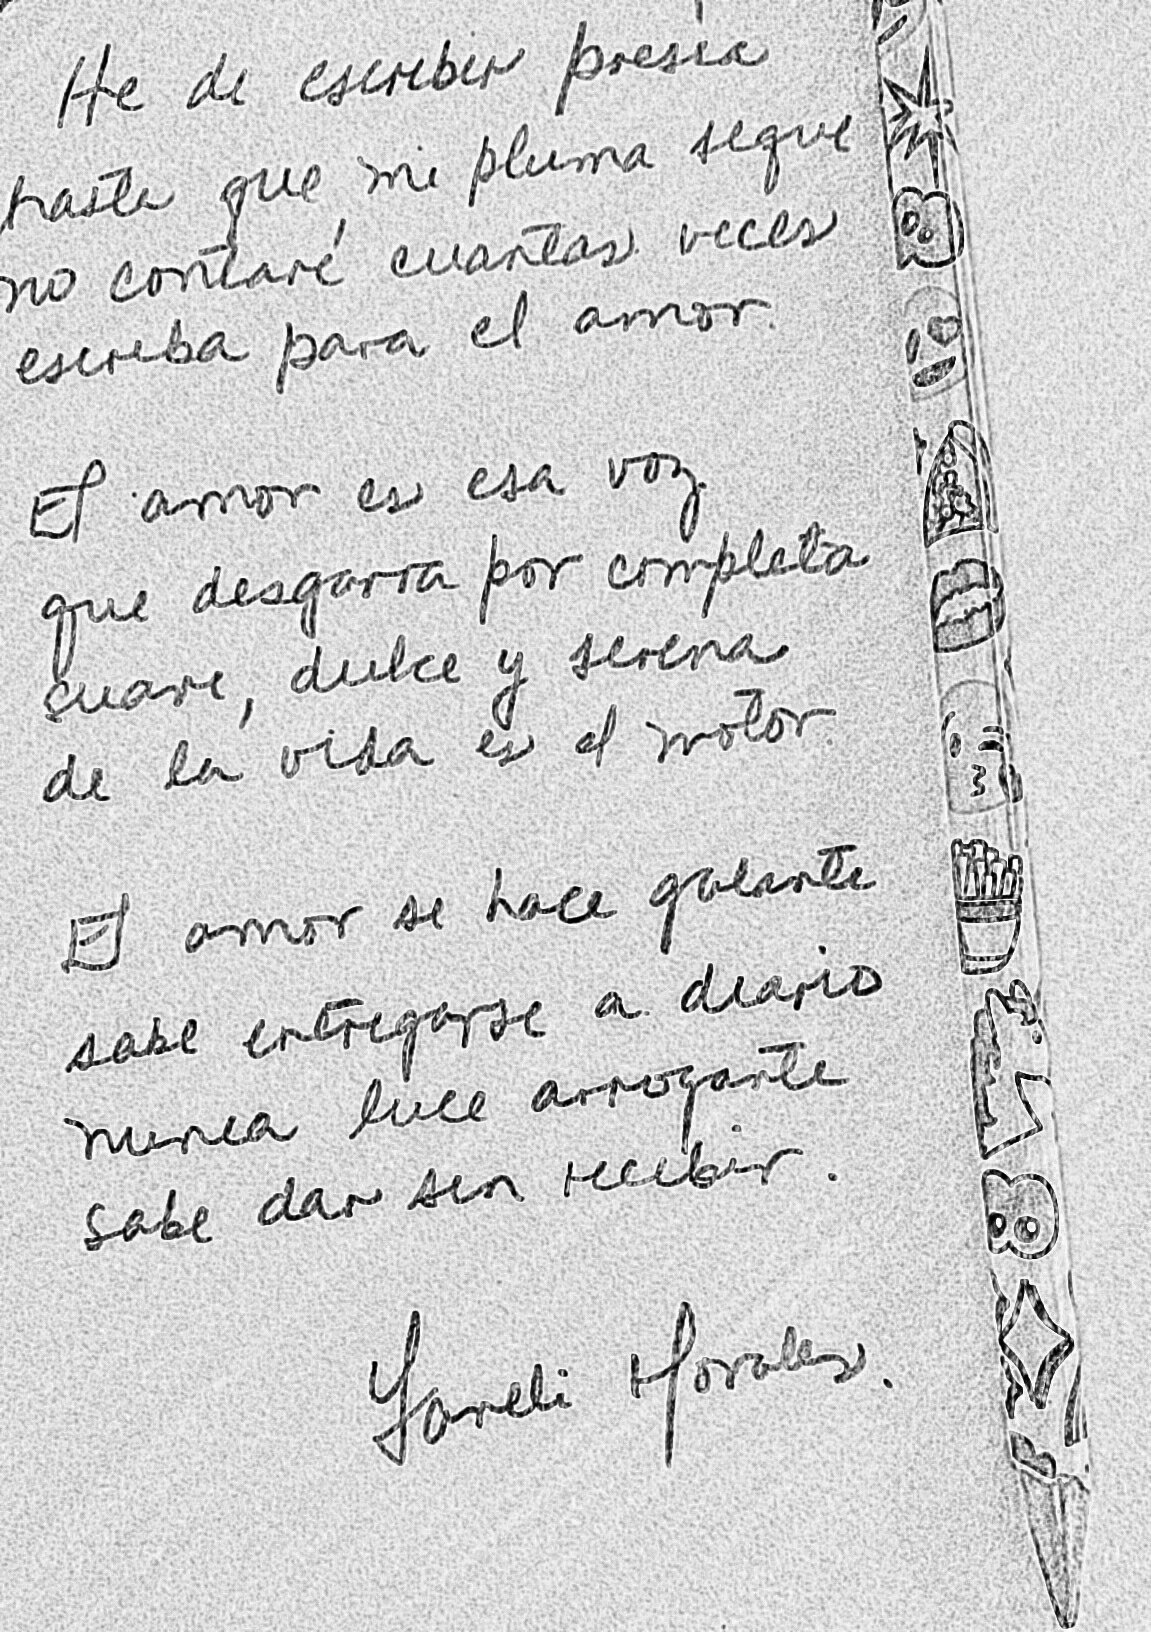 He de escribir poesía
hasta que mi pluma seque
no contaré cuantas veces
escriba para el amor.
El amor es esa voz
que desgarra por completa
suave, dulce y serena
de la vida es el motor.
El amor se hace galante
sabe entregarse a diario
nunca luce arrogante
sabe dar sin recibir.
Yareli Morales.